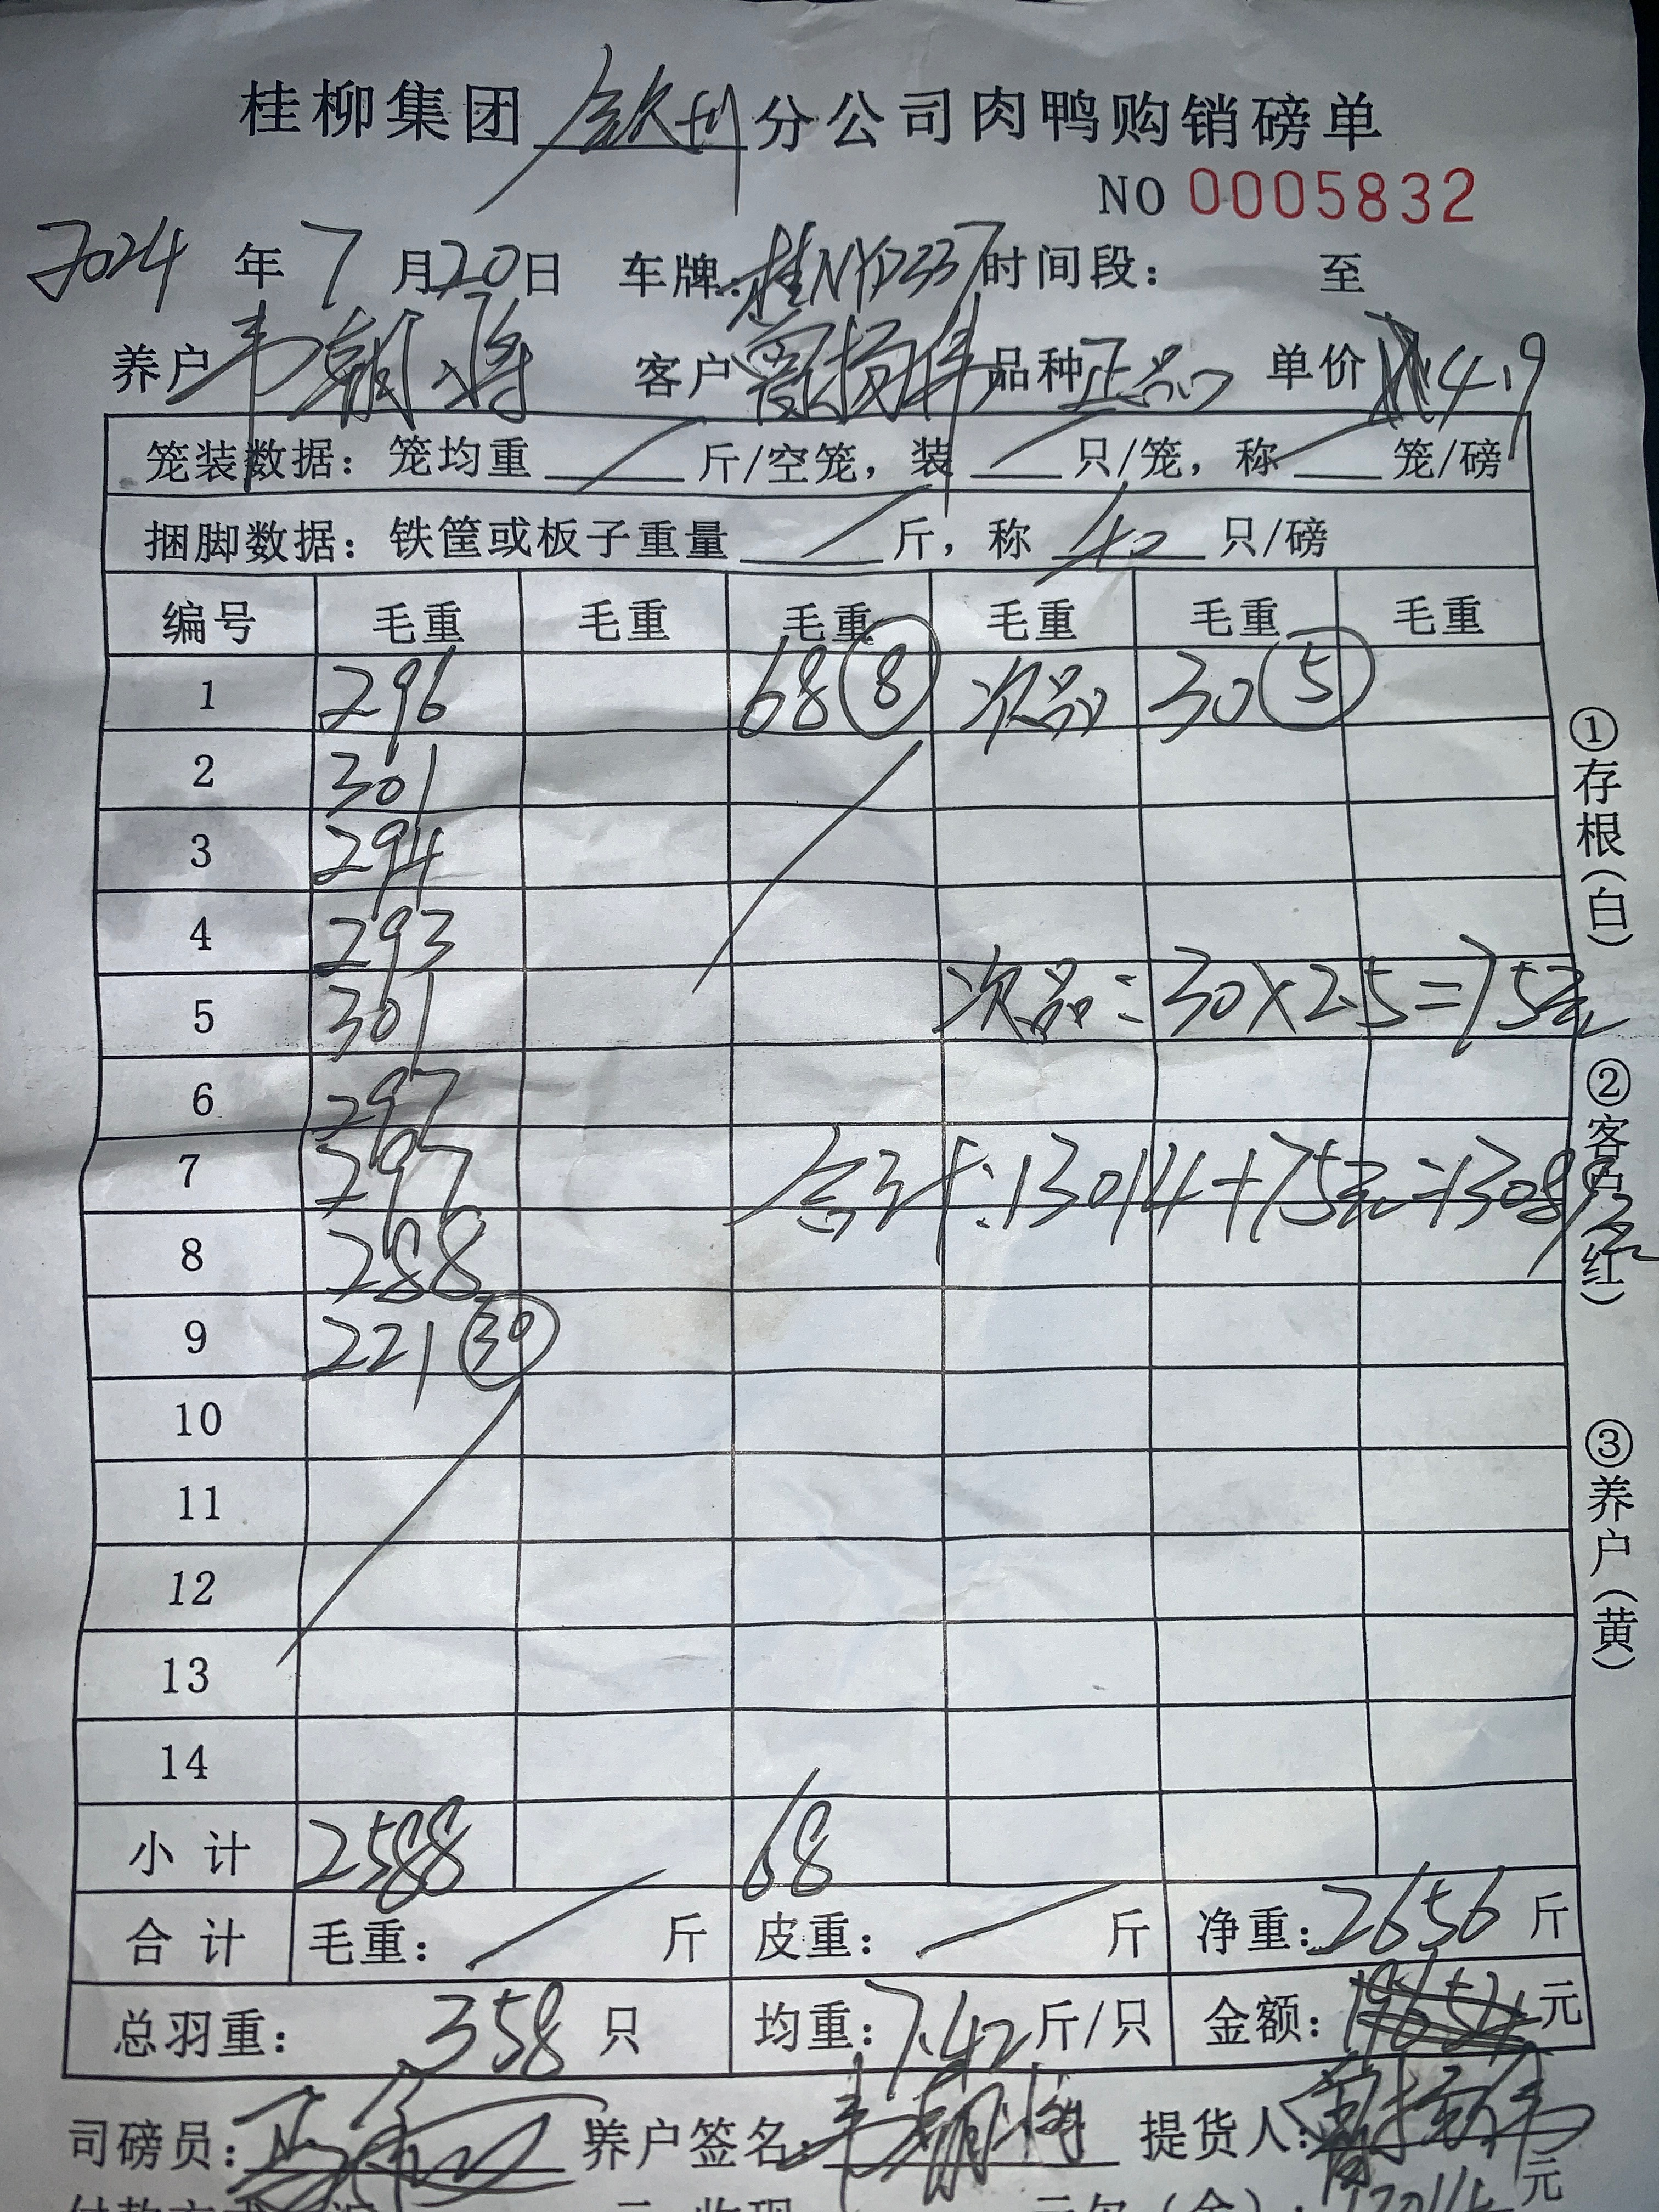 桂柳集团 钦州 分公司肉鸭购销磅单
NO 0005832
2024 年 7 月 20 日 车牌: 桂NYD237 时间段: 至
养户 韦朝将 客户 品种 正品 单价 4.9
笼装数据: 笼均重 / 斤/空笼, 装 / 只/笼, 称 / 笼/磅
捆脚数据: 铁筐或板子重量 / 斤, 称 40 只/磅
编号 毛重 毛重 毛重 毛重 毛重 毛重
1 296 68 ⑧ 次品 30 ⑤
2 301
3 294
4 293
次品: 30×2.5=75元
5 301
6 297
7 297
合计: 13014+75元=13089元
8 288
9 221 ㉚
10
11
12
13
14
小计 2588 68
合计 毛重: / 斤 皮重: / 斤 净重: 2656 斤
总羽重: 358 只 均重: 7.42 斤/只 金额: 元
司磅员: 养户签名: 韦朝将 提货人:
元
13014
①存根(白)
②客户(红)
③养户(黄)